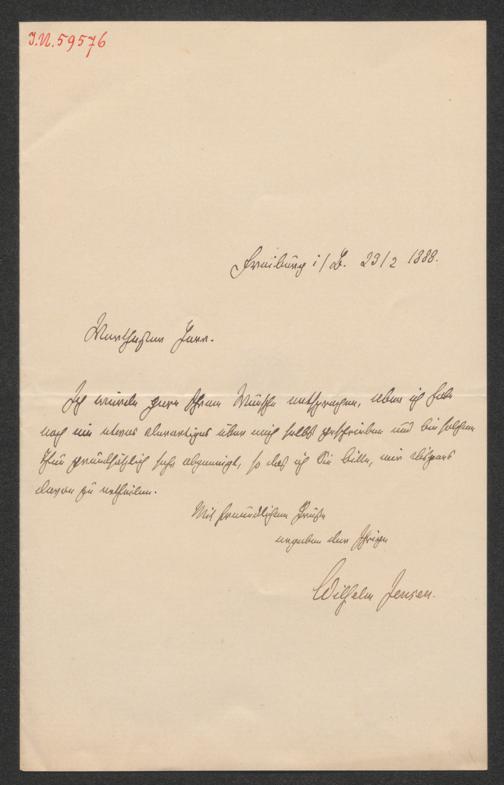 J.N. 59576
Freiburg i/B. 23/2 1888.
Werthester Herr.
Ich würde gern Ihrem Wunsche entsprechen, aber ich habe
noch nie etwas derartiges über mich selbst geschrieben und bin solchem
Thun grundsätzlich sehr abgeneigt, so daß ich Sie bitte, mir
davon zu
Mit freundlichem Gruße
ergeben der Ihrige
Wilhelm Jensen.